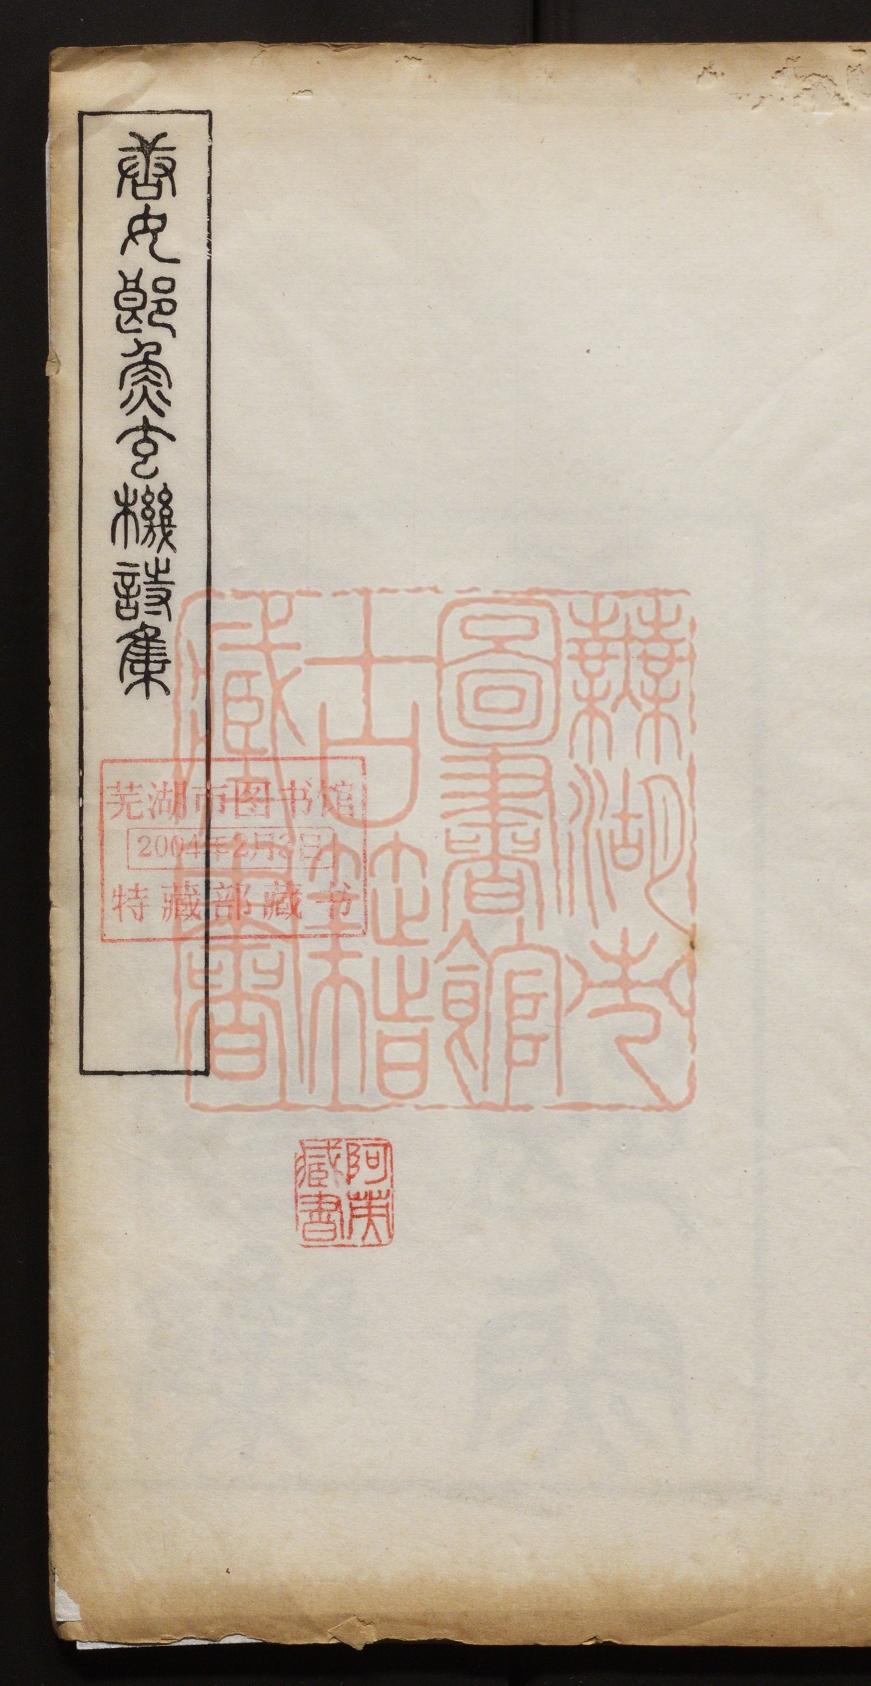 唐女郎魚玄機詩集
蕪湖市
圖書館
古籍
藏書
芜湖市图书馆
2004年2月
特藏部藏书
阿英
藏書